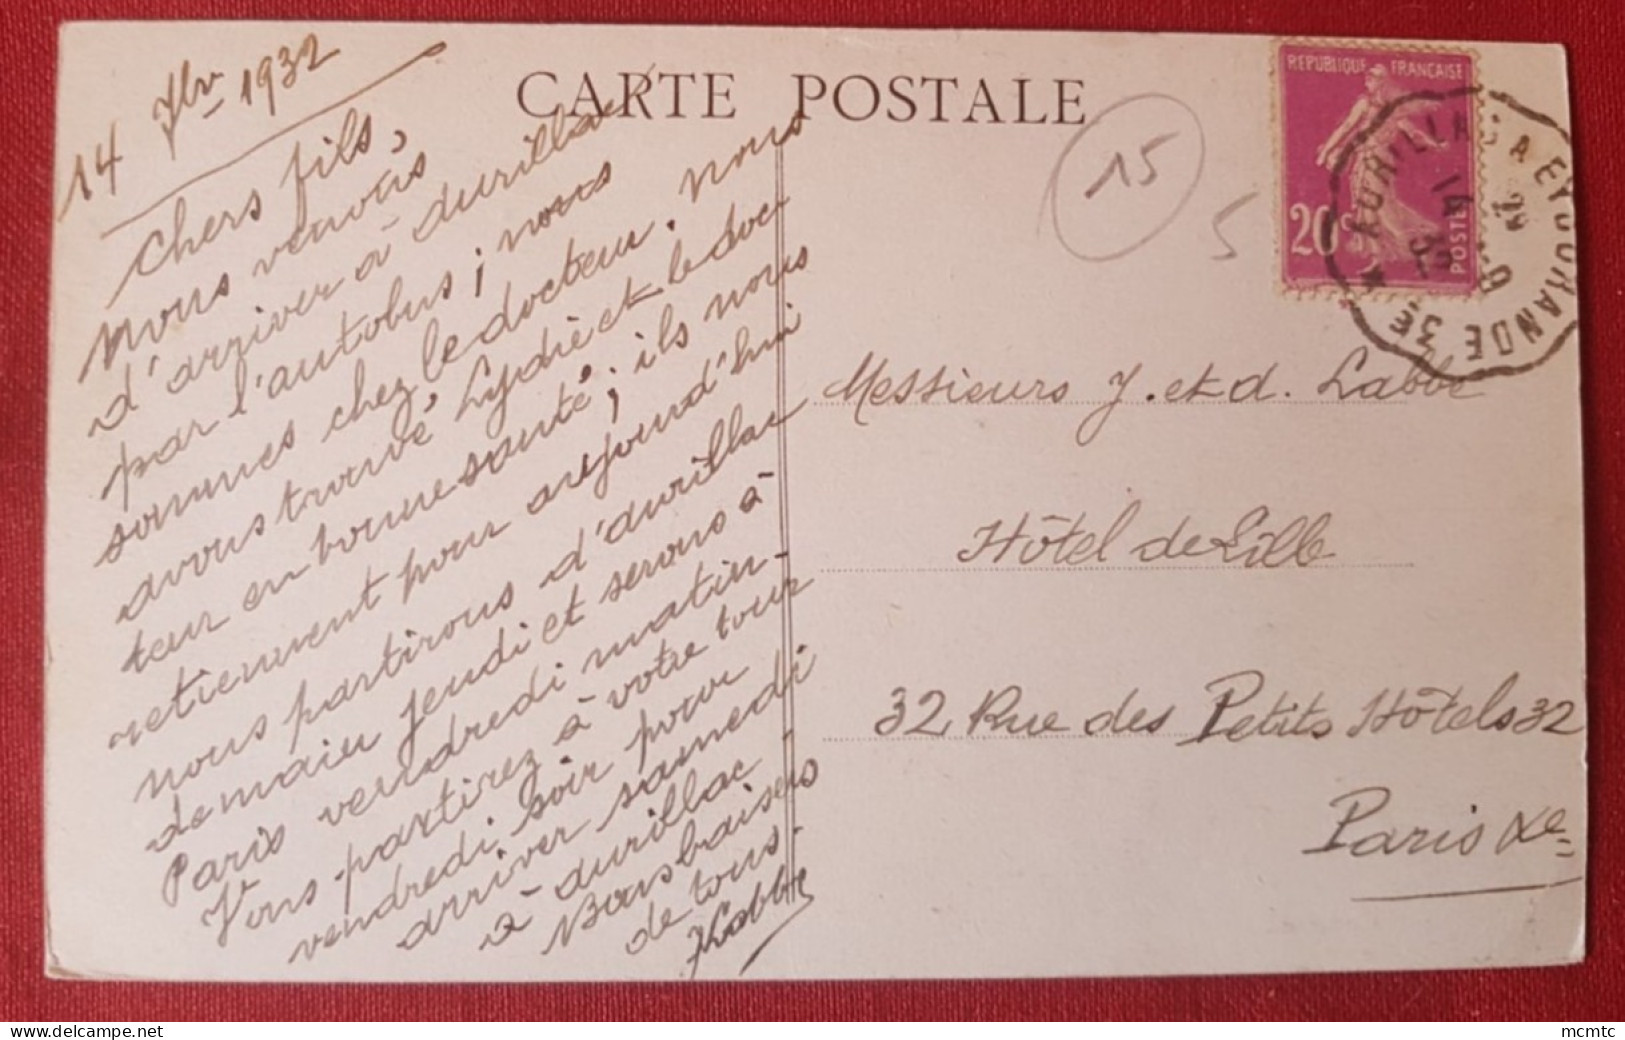 14 7bre 1932
CARTE POSTALE
Chers fils,
Nous venons
d'arriver à Aurillac
par l'autobus ; nous
sommes chez le docteur. Nous
avons trouvé, Lydie et le doc-
teur en bonne santé ; ils nous
retiennent pour aujourd'hui
nous partirons d'Aurillac
demain jeudi et serons à
Paris vendredi matin -
Vous partirez à votre tour
vendredi soir pour
arriver samedi
à Aurillac -
Bons baisers
de tous.
Labbe
15
5
REPUBLIQUE FRANÇAISE
20c
POSTES
AURILLAC A EYGURANDE 3E
14
32
Messieurs J. et A. Labbe
Hôtel de Lille
32 Rue des Petits Hôtels 32
Paris Xe
mcmtc